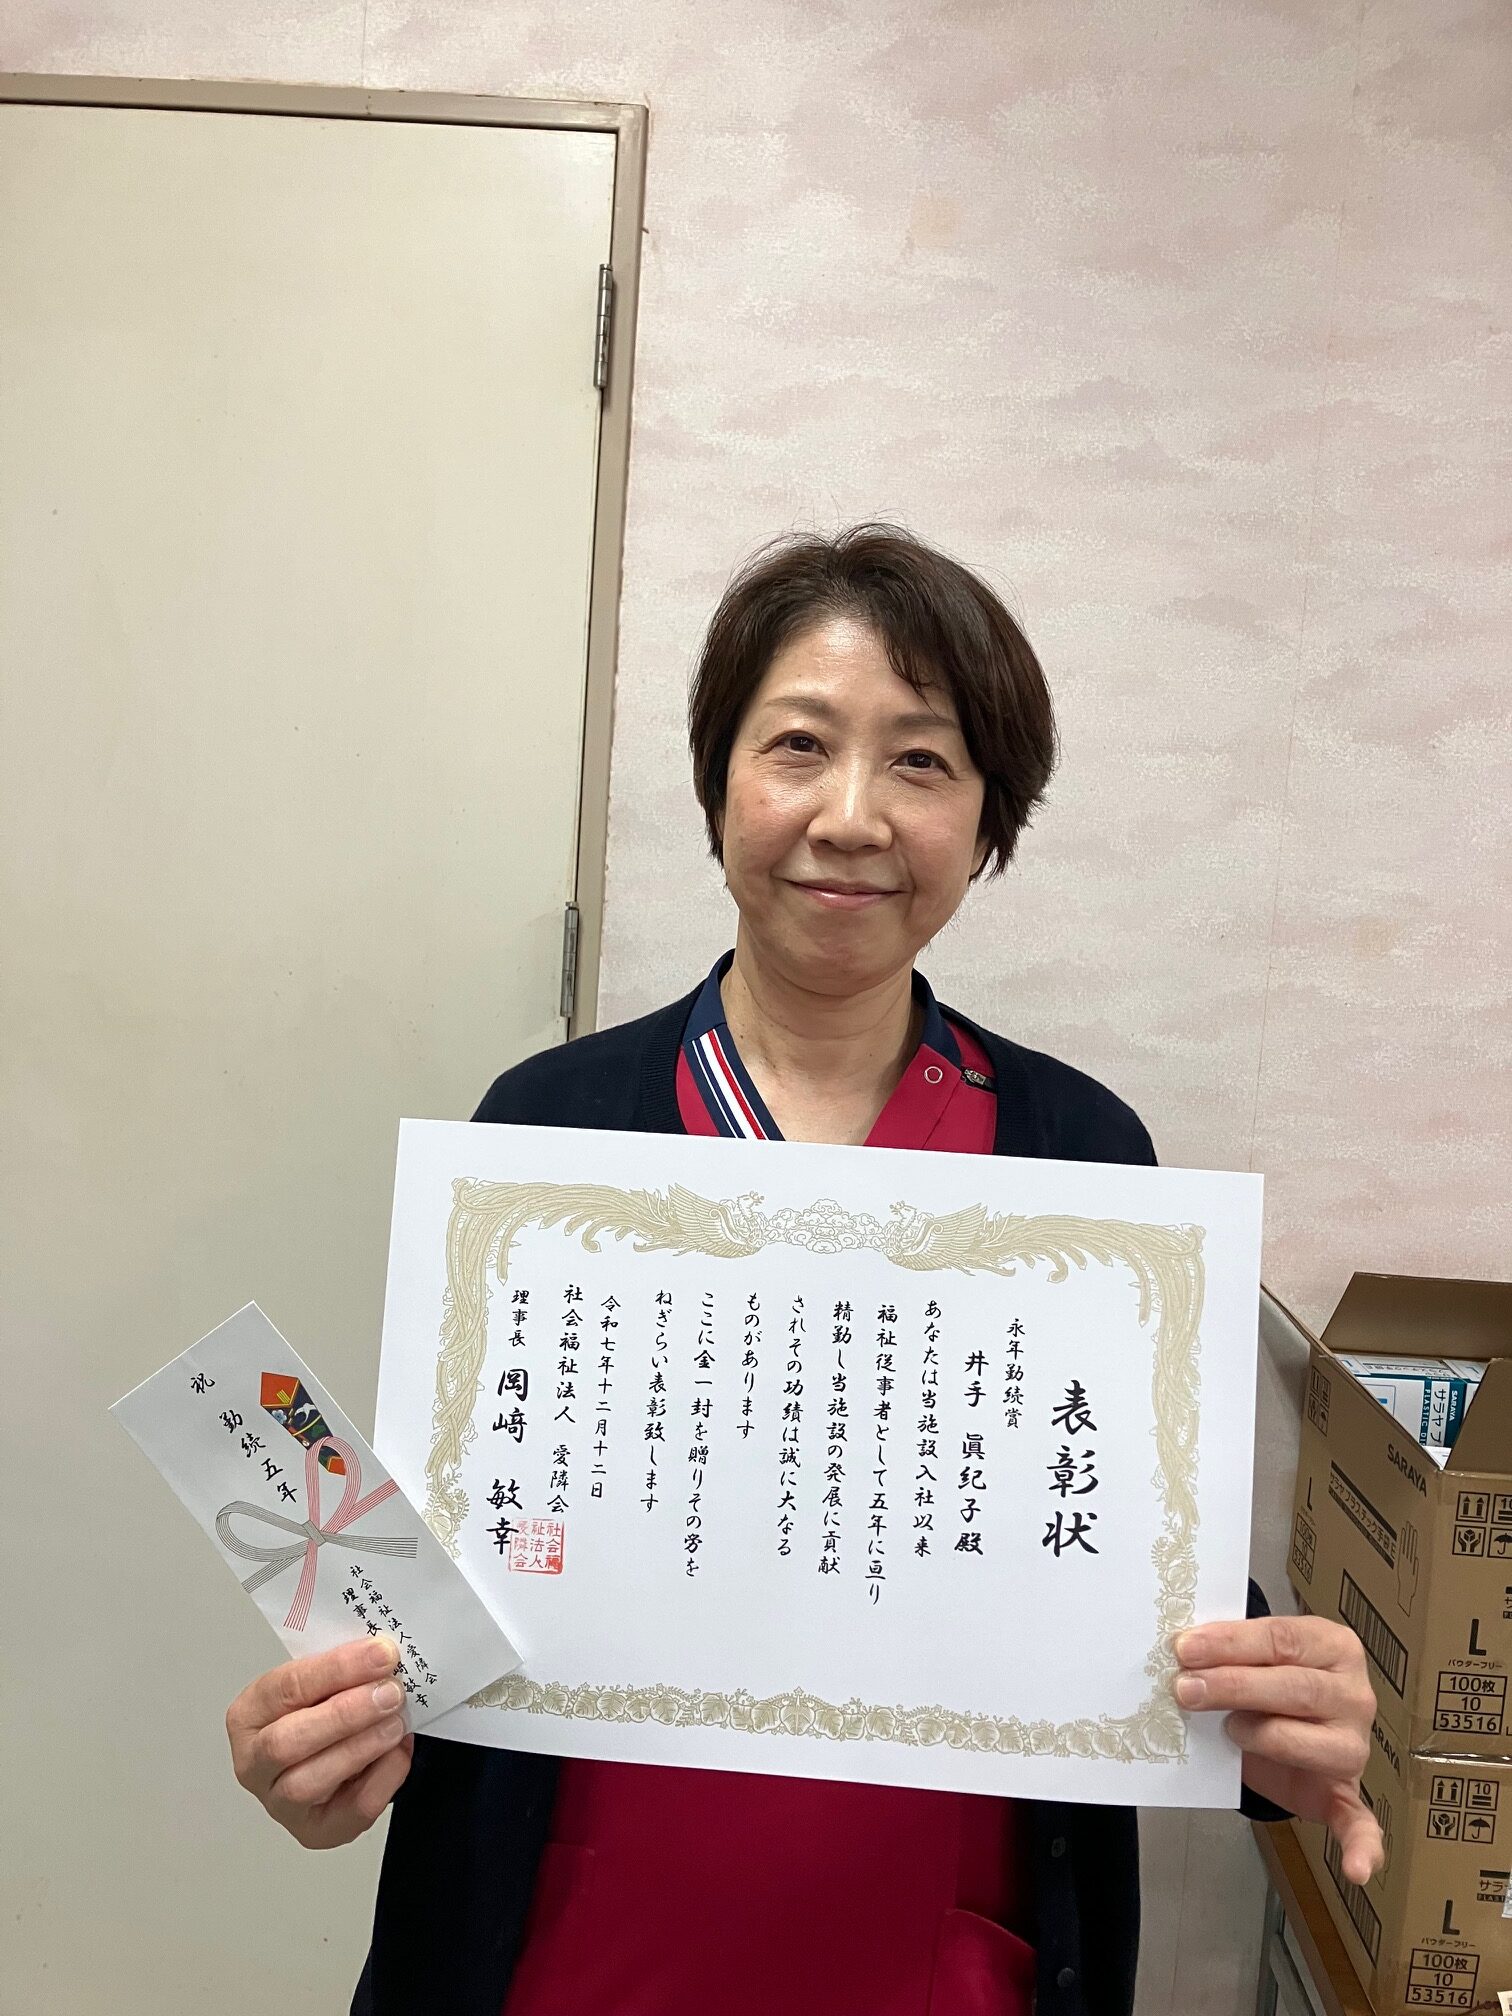 表彰状
永年勤続賞
井手 眞紀子 殿
あなたは当施設入社以来
福祉従事者として五年に亘り
精勤し当施設の発展に貢献
されその功績は誠に大なる
ものがあります
ここに金一封を贈りその労を
ねぎらい表彰致します
令和七年十二月十二日
社会福祉法人 愛隣会
理事長 岡﨑 敏幸
社会福
祉法人
愛隣会
祝 勤続五年
社会福祉法人愛隣会
理事長 﨑敏幸
SARAYA
サラヤプ
PLASTIC
SARAYA
サラヤプラスチック手袋
L
L
パウダーフリー
100枚
10
53516
53516
SARAYA
10
サラヤ
L
パウダーフリー
100枚
10
53516